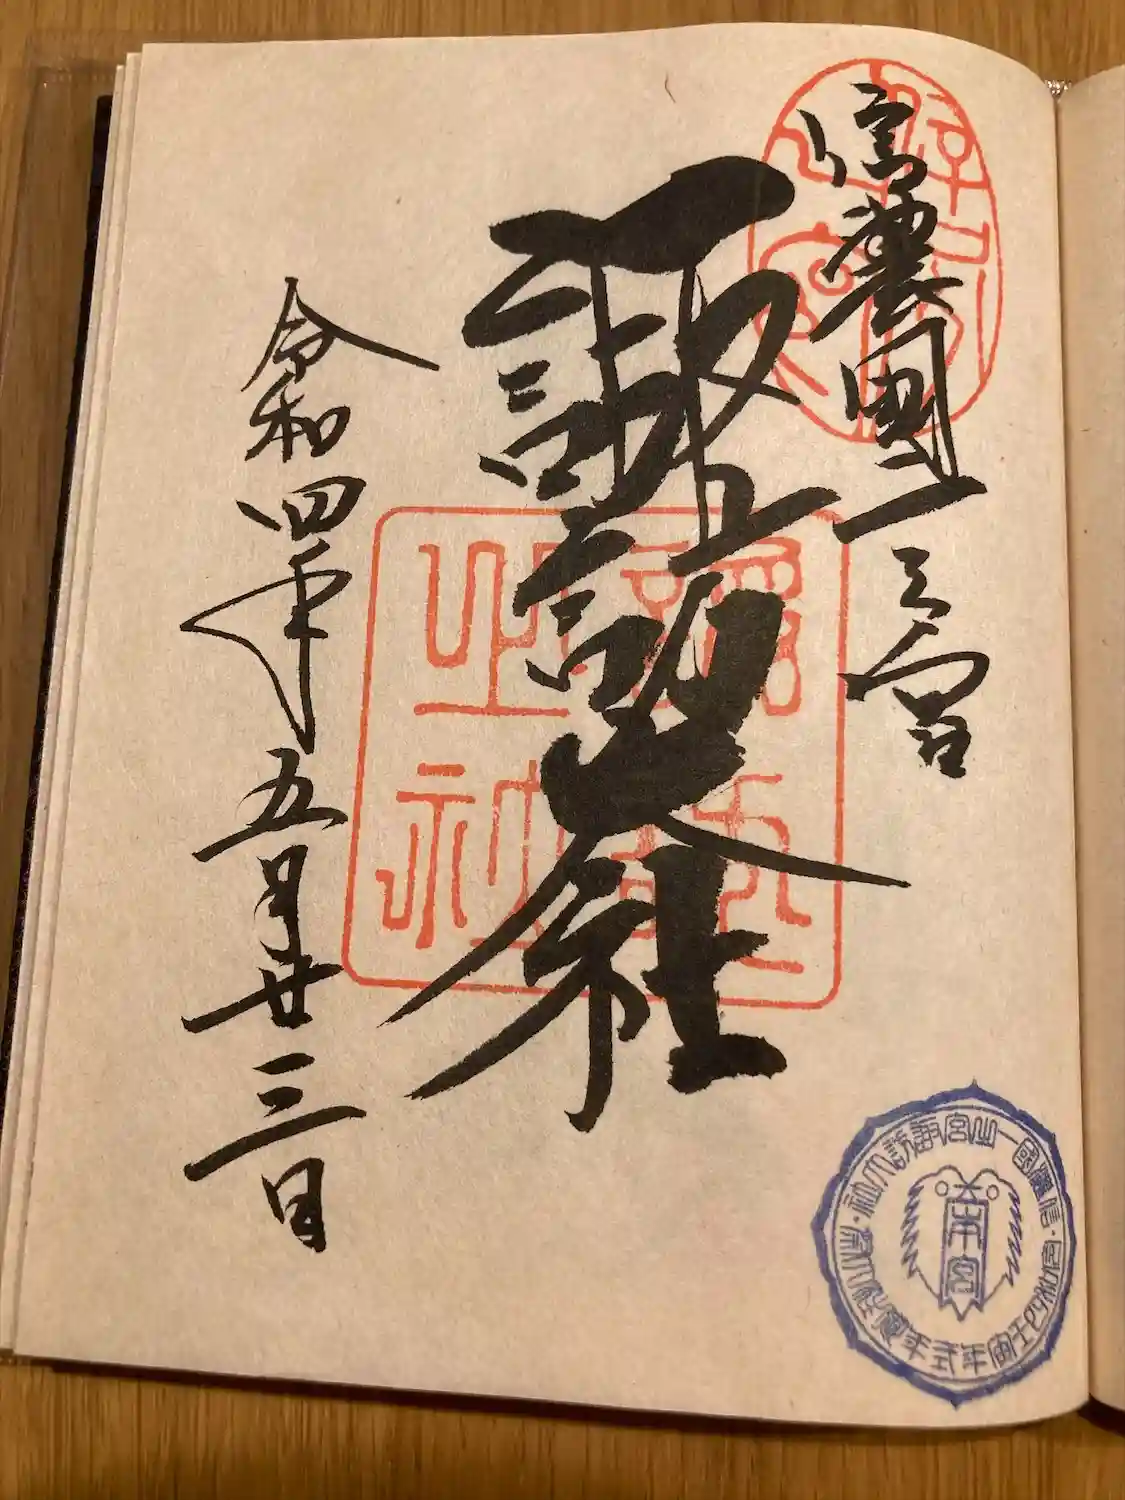 信濃國一之宮
諏訪大社
令和四年五月廿三日
信濃國一之宮諏訪大社
令和四壬寅年式年造営御柱大祭
本宮